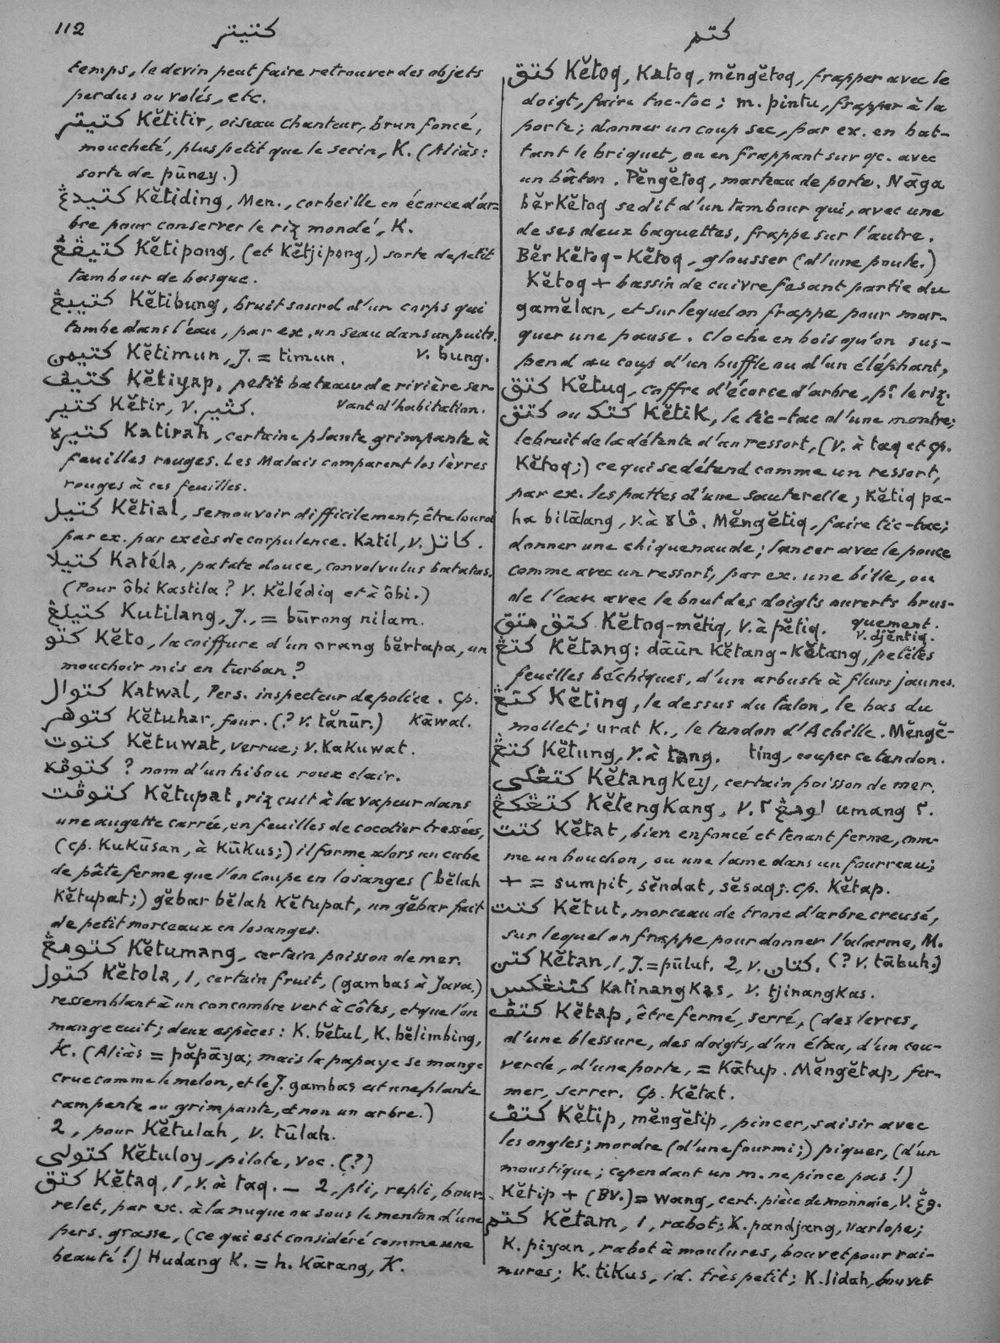 112
كتيتر
كتم
temps, le devin peut faire retrouver des objets
perdus ou volés, etc.
كتيتر Kĕtitir, oiseau chanteur, brun foncé,
moucheté, plus petit que le serin, K. (Aliàs:
sorte de pūney.)
كتيدڠ Kĕtiding, Men., corbeille en écorce d'ar-
bre pour conserver le riz mondé, K.
كتيڤڠ Kĕtipong, (et Kĕtjipong,) sorte de petit
tambour de basque.
كتيبڠ Kĕtibung, bruit sourd d'un corps qui
tombe dans l'eau, par ex. un seau dans un puits.
كتيمن Kĕtimun, J. = timun. V. bung.
كتيڤ Kĕtiyap, petit bateau de rivière ser-
vant d'habitation.
كتير Kĕtir, V. كثير.
كتيره Katirah, certaine plante grimpante à
feuilles rouges. Les Malais comparent les lèvres
rouges à ces feuilles.
كتيل Kĕtial, se mouvoir difficilement, être lourd
par ex. par excès de corpulence. Katil, V. كاتل.
كتيلا Katéla, patate douce, convolvulus batatas,
(Pour ôbi Kastila? V. Kĕlédiq et à ôbi.)
كتيلڠ Kutilang, J., = būrong nilam.
كتو Kĕto, la coiffure d'un orang bĕrtapa, un
mouchoir mis en turban?
كتوال Katwal, Pers. inspecteur de police. Cp.
Kāwal.
كتوهر Kĕtuhar, four. (? V. tănūr.)
كتوت Kĕtuwat, verrue; V. Kakuwat.
كتوڤه ? nom d'un hibou roux clair.
كتوڤت Kĕtupat, riz cuit à la vapeur dans
une augette carrée, en feuilles de cocotier tressées,
(cp. Kukūsan, à Kūkus;) il forme alors un cube
de pâte ferme que l'on coupe en losanges (bĕlah
Kĕtupat;) gĕbar bĕlah Kĕtupat, un gĕbar fait
de petit morceaux en losanges.
كتومڠ Kĕtumang, certain poisson de mer.
كتول Kĕtola, 1, certain fruit, (gambas à Java,)
ressemblant à un concombre vert à côtes, et que l'on
mange cuit; deux espèces: K. bĕtul, K. bĕlimbing,
K. (Aliàs = păpāya; mais la papaye se mange
crue comme le melon, et le J. gambas est une plante
rampante ou grimpante, et non un arbre.)
2, pour Kĕtulah, V. tūlah.
كتولي Kĕtuloy, pilote, voc. (?)
كتق Kĕtaq, 1, V. à taq. — 2, pli, repli, bour-
relet, par ex. à la nuque ou sous le menton d'une
pers. grasse, (ce qui est considéré comme une
beauté!) Hudang K. = h. Kārang, K.
كتق Kĕtoq, Katoq, mĕngĕtoq, frapper avec le
doigt, faire toc-toc; m. pintu, frapper à la
porte; donner un coup sec, par ex. en bat-
tant le briquet, ou en frappant sur qc. avec
un bâton. Pĕngĕtoq, marteau de porte. Nāga
bĕrKĕtoq se dit d'un tambour qui, avec une
de ses deux baguettes, frappe sur l'autre.
Bĕr Kĕtoq-Kĕtoq, glousser (d'une poule.)
Kĕtoq + bassin de cuivre faisant partie du
gamĕlan, et sur lequel on frappe pour mar-
quer une pause. Cloche en bois qu'on sus-
pend au coup d'un buffle ou d'un éléphant,
كتق Kĕtuq, coffre d'écorce d'arbre, pr. le riz.
كتق ou كتک Kĕtik, le tic-tac d'une montre;
le bruit de la détente d'un ressort, (V. à taq et cp.
Kĕtoq;) ce qui se détend comme un ressort,
par ex. les pattes d'une sauterelle; Kĕtiq pa-
ha bilālang, V. à ڤاه. Mĕngĕtiq, faire tic-tac;
donner une chiquenaude; lancer avec le pouce
comme avec un ressort, par ex. une bille, ou
de l'eau avec le bout des doigts ouverts brus-
quement.
كتق متق Kĕtoq-mĕtiq, V. à pĕtiq. V. djĕntiq.
كتڠ Kĕtang: dāūn Kĕtang-Kĕtang, petites
feuilles béchiques, d'un arbuste à fleurs jaunes.
كتڠ Kĕting, le dessus du talon, le bas du
mollet; urat K., le tendon d'Achille. Mĕngĕ-
ting, couper ce tendon.
كتڠ Kĕtung, V. à tang.
كتڠكي KĕtangKey, certain poisson de mer.
كتڠكڠ KĕtengKang, V. اومڠ ٢ umang ٢.
كتت Kĕtat, bien enfoncé et tenant ferme, com-
me un bouchon, ou une lame dans un fourreau;
+ = sumpit, sĕndat, sĕsaq; cp. Kĕtap.
كتت Kĕtut, morceau de tronc d'arbre creusé,
sur lequel on frappe pour donner l'alarme, M.
كتن Kĕtan, 1, J. = pūlut. 2, V. كتان. (? V. tābuh.)
كتنڠكس KatinangKas, V. tjinangKas.
كتڤ Kĕtap, être fermé, serré, (des lèvres,
d'une blessure, des doigts, d'un étau, d'un cou-
vercle, d'une porte, = Kātup. Mĕngĕtap, fer-
mer, serrer. Cp. Kĕtat.
كتڤ Kĕtip, mĕngĕtip, pincer, saisir avec
les ongles; mordre (d'une fourmi;) piquer, (d'un
moustique; cependant un m. ne pince pas!)
Kĕtip + (BV.) = wang, cert. pièce de monnaie, V.
كتم Kĕtam, 1, rabot; K. pandjang, varlope;
K. piyan, rabot à moulures, bouvet pour rai-
nures; K. tiKus, id. très petit; K. lidah, bouvet